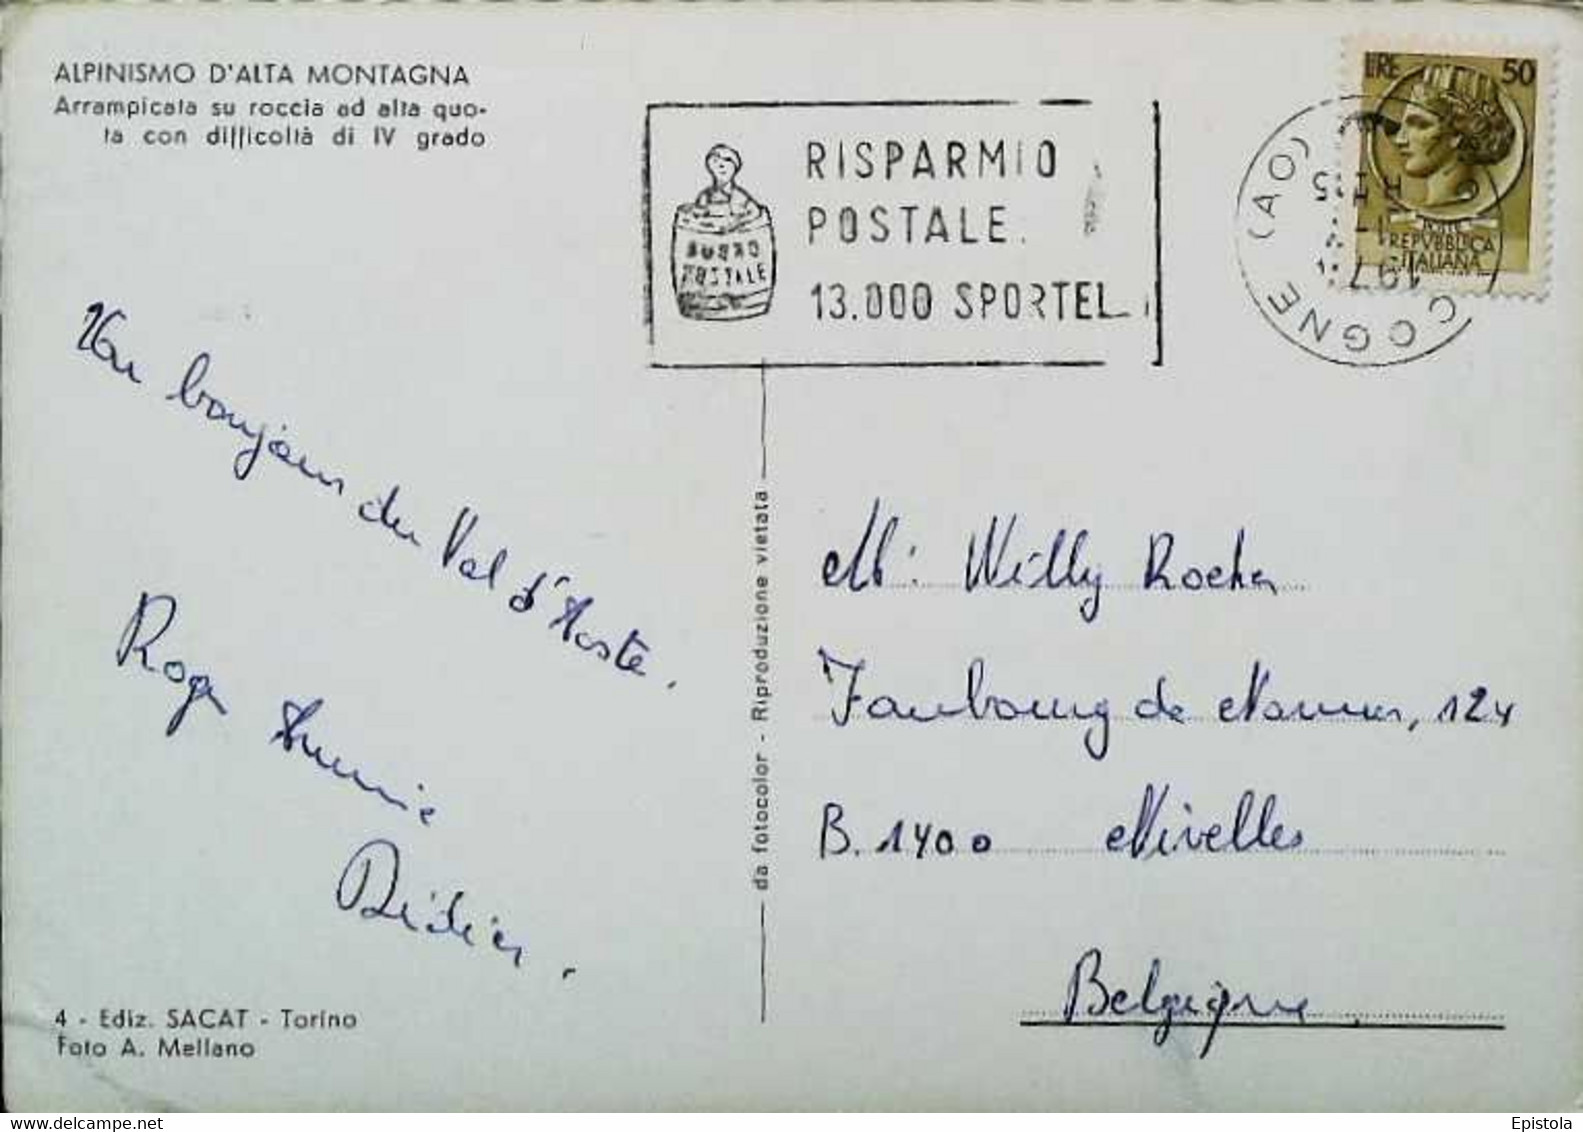 ALPINISMO D'ALTA MONTAGNA
Arrampicata su roccia ad alta quo-
ta con difficoltà di IV grado
RISPARMIO
POSTALE.
13.000 SPORTEL
BUONO
POSTALE
LIRE 50
POSTE
REPVBBLICA
ITALIANA
COGNE (AO)
Un bonjour du Val d'Aoste.
Roger Annie
Didier.
Mr Willy Rocher
Faubourg de Namur, 124
B. 1400 Nivelles
Belgique
da fotocolor - Riproduzione vietata
4 - Ediz. SACAT - Torino
Foto A. Mellano
Epistola